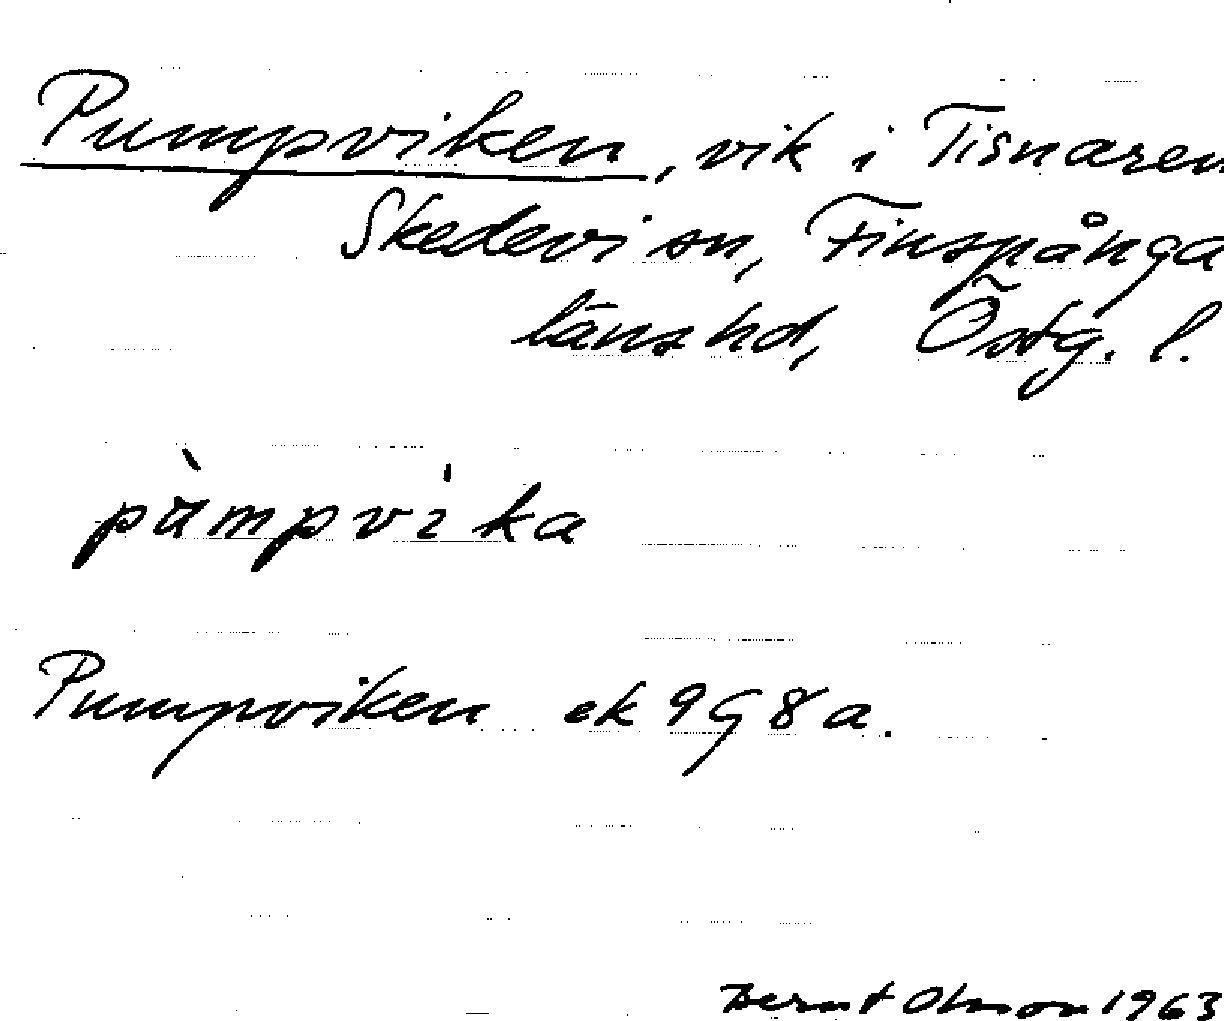 Pumpviken, vik i Tisnaren
Skedevi sn, Finspånga
länshd, Östg. l.
pùmpvi'ka
Pumpviken ek 9G8a.
Bernt Olsson 1963